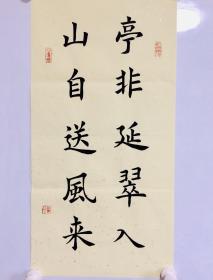 亭非延翠入
山自送風来